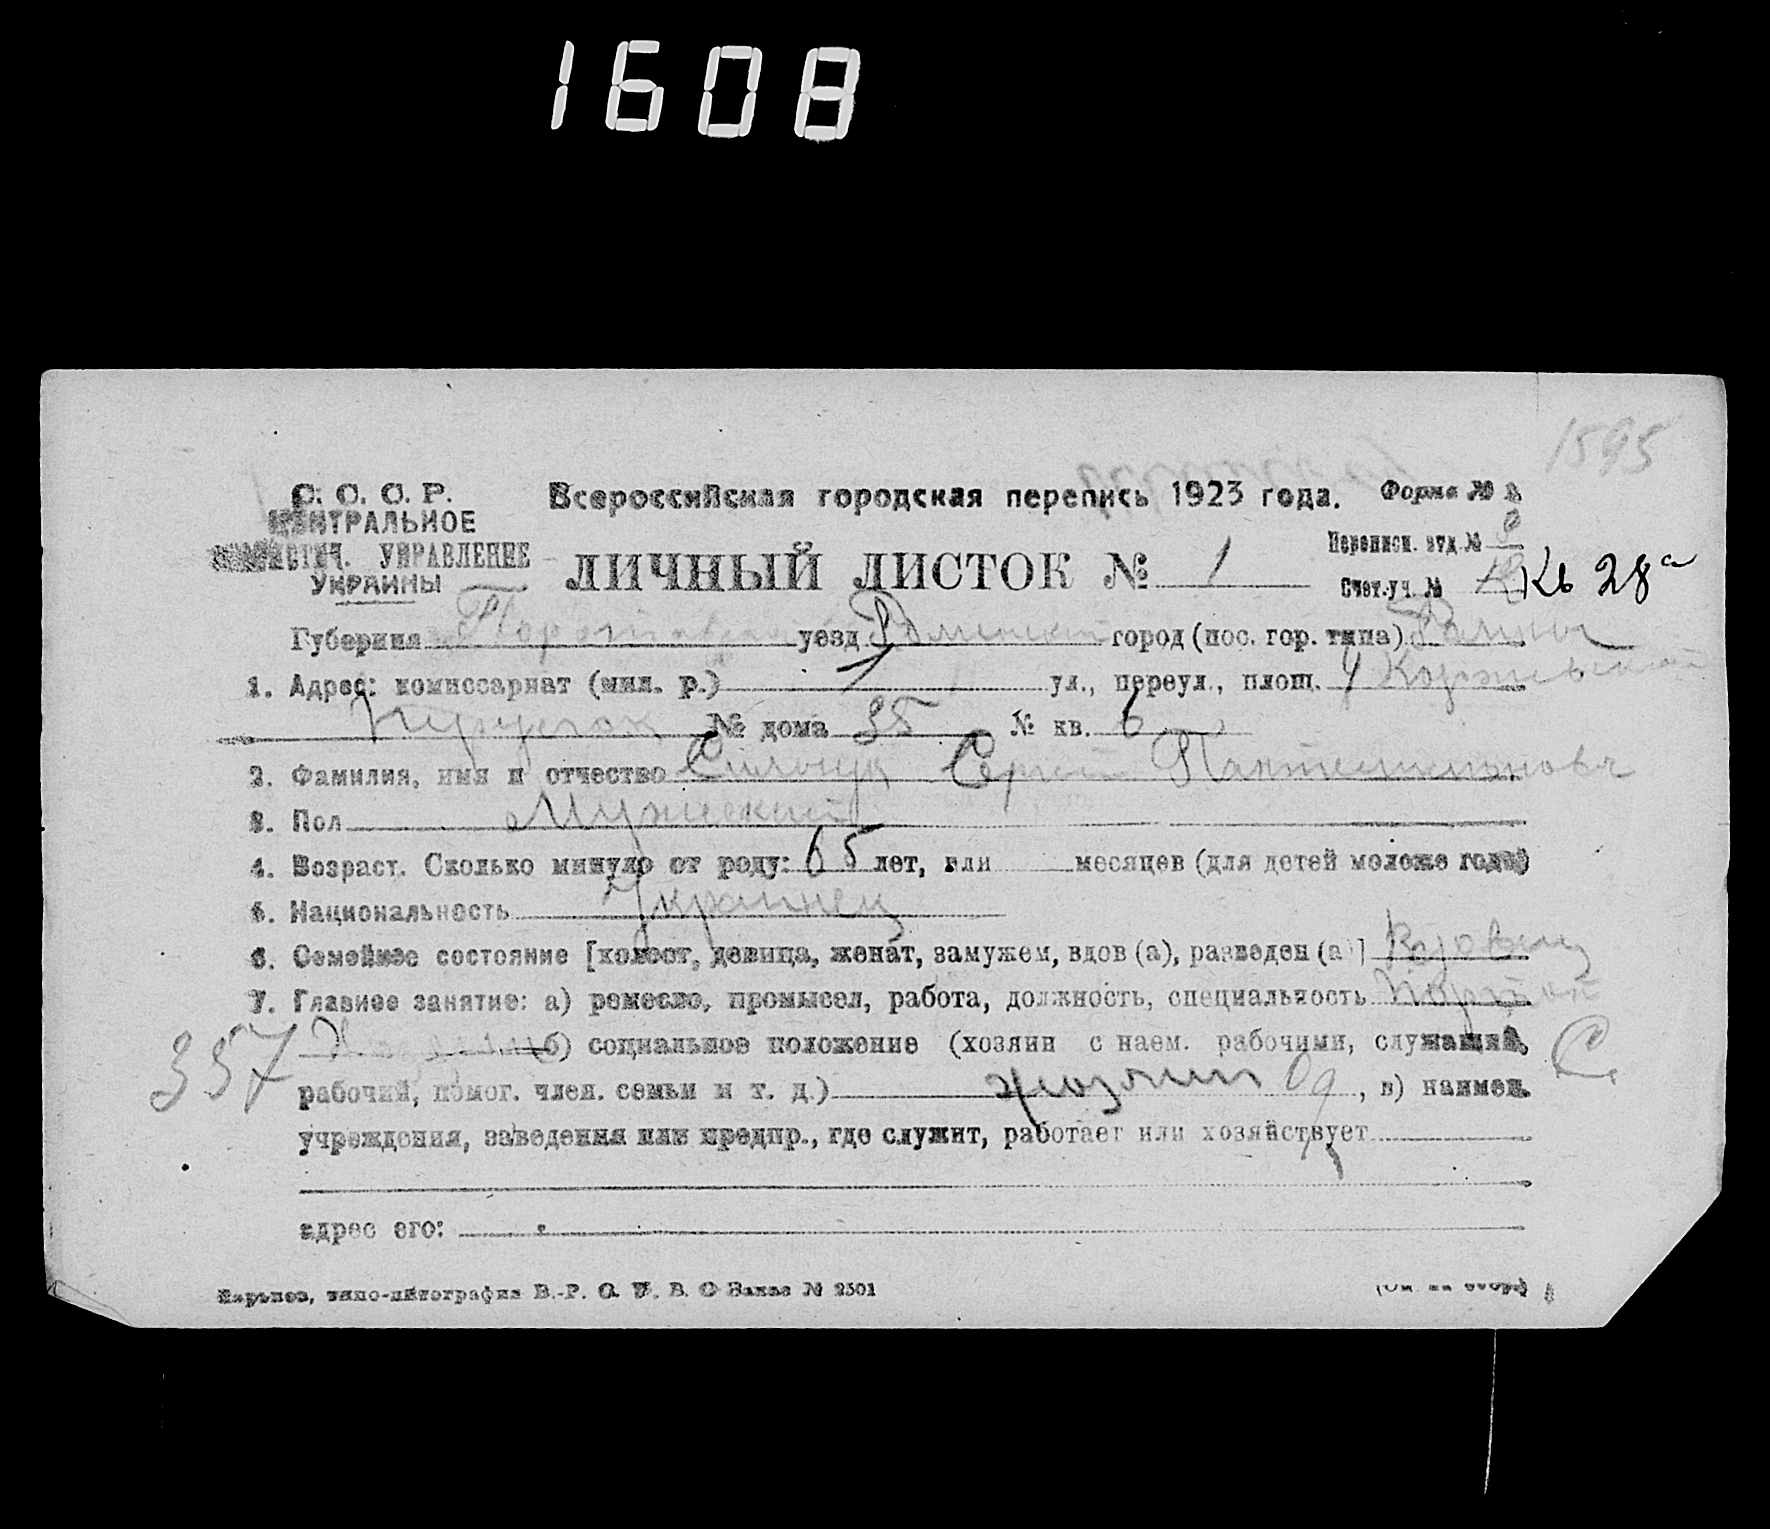 1608
1595
С. С. С. Р.
ЦЕНТРАЛЬНОЕ
СТАТИСТИЧ. УПРАВЛЕНИЕ
УКРАИНЫ
Всероссийская городская перепись 1923 года.
Форма №
ЛИЧНЫЙ ЛИСТОК № 1
Переписн. отд. №
Счет. уч. № Кв 28а
Губерния уезд Роменский город (пос. гор. типа) Ромны
1. Адрес: комиссариат (мил. р.) 1 ул., переул., площ. 4 Коржевский
Переулок № дома 35 № кв. 6
2. Фамилия, имя и отчество Сергей Пантелеймонов
3. Пол Мужеский
4. Возраст. Сколько минуло от роду: 65 лет, или месяцев (для детей моложе года)
5. Национальность Украинец
6. Семейное состояние [холост, девица, женат, замужем, вдов (а), разведен (а)] Вдовец
7. Главное занятие: а) ремесло, промысел, работа, должность, специальность Портной
357 б) социальное положение (хозяин с наем. рабочими, служащий, С
рабочий, помог. член. семьи и т. д.) хозяин Од, в) наимен.
учреждения, заведения или предпр., где служит, работает или хозяйствует
адрес его:
Харьков, типо-литография В.-Р. У. В. О Заказ № 2501
(См. на обор.)